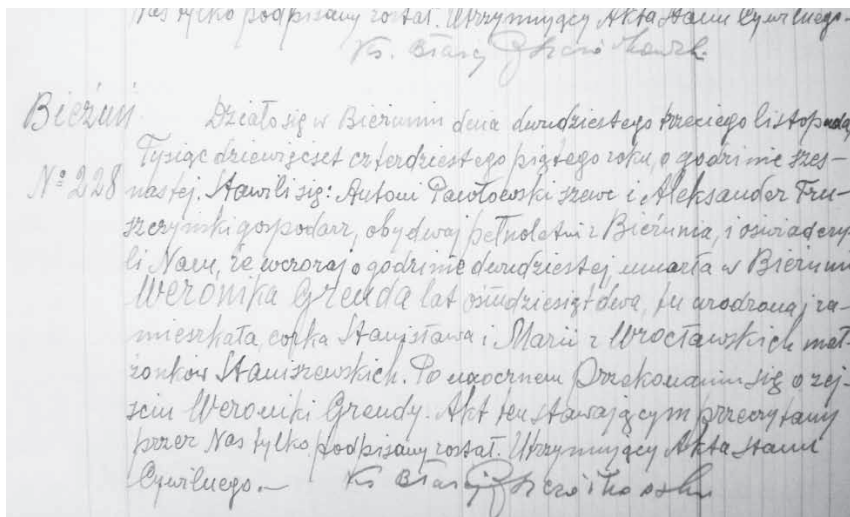 Nas tylko podpisany został. Utrzymujący Akta Stanu Cywilnego.
Ks. Błażej
Bieżuń Działo się w Bieżuniu dnia dwudziestego trzeciego listopada,
Tysiąc dziewięćset czterdziestego piątego roku, o godzinie szes-
№ 228 nastej. Stawili się: Antoni Pawłowski szewc i Aleksander Tru-
szczyński gospodarz, obydwaj pełnoletni z Bieżunia, i oświadczy-
li Nam, że wczoraj o godzinie dwudziestej umarła w Bieżuniu
Weronika Grenda lat ośmdziesiąt dwa, tu urodzona i za-
mieszkała, córka Stanisława i Marii z Wrocławskich mał-
żonków Staniszewskich. Po naocznem przekonaniu się o zej-
ściu Weroniki Grendy. Akt ten stawającym przeczytany
przez Nas tylko podpisany został. Utrzymujący Akta Stanu
Cywilnego.— Ks Błażej